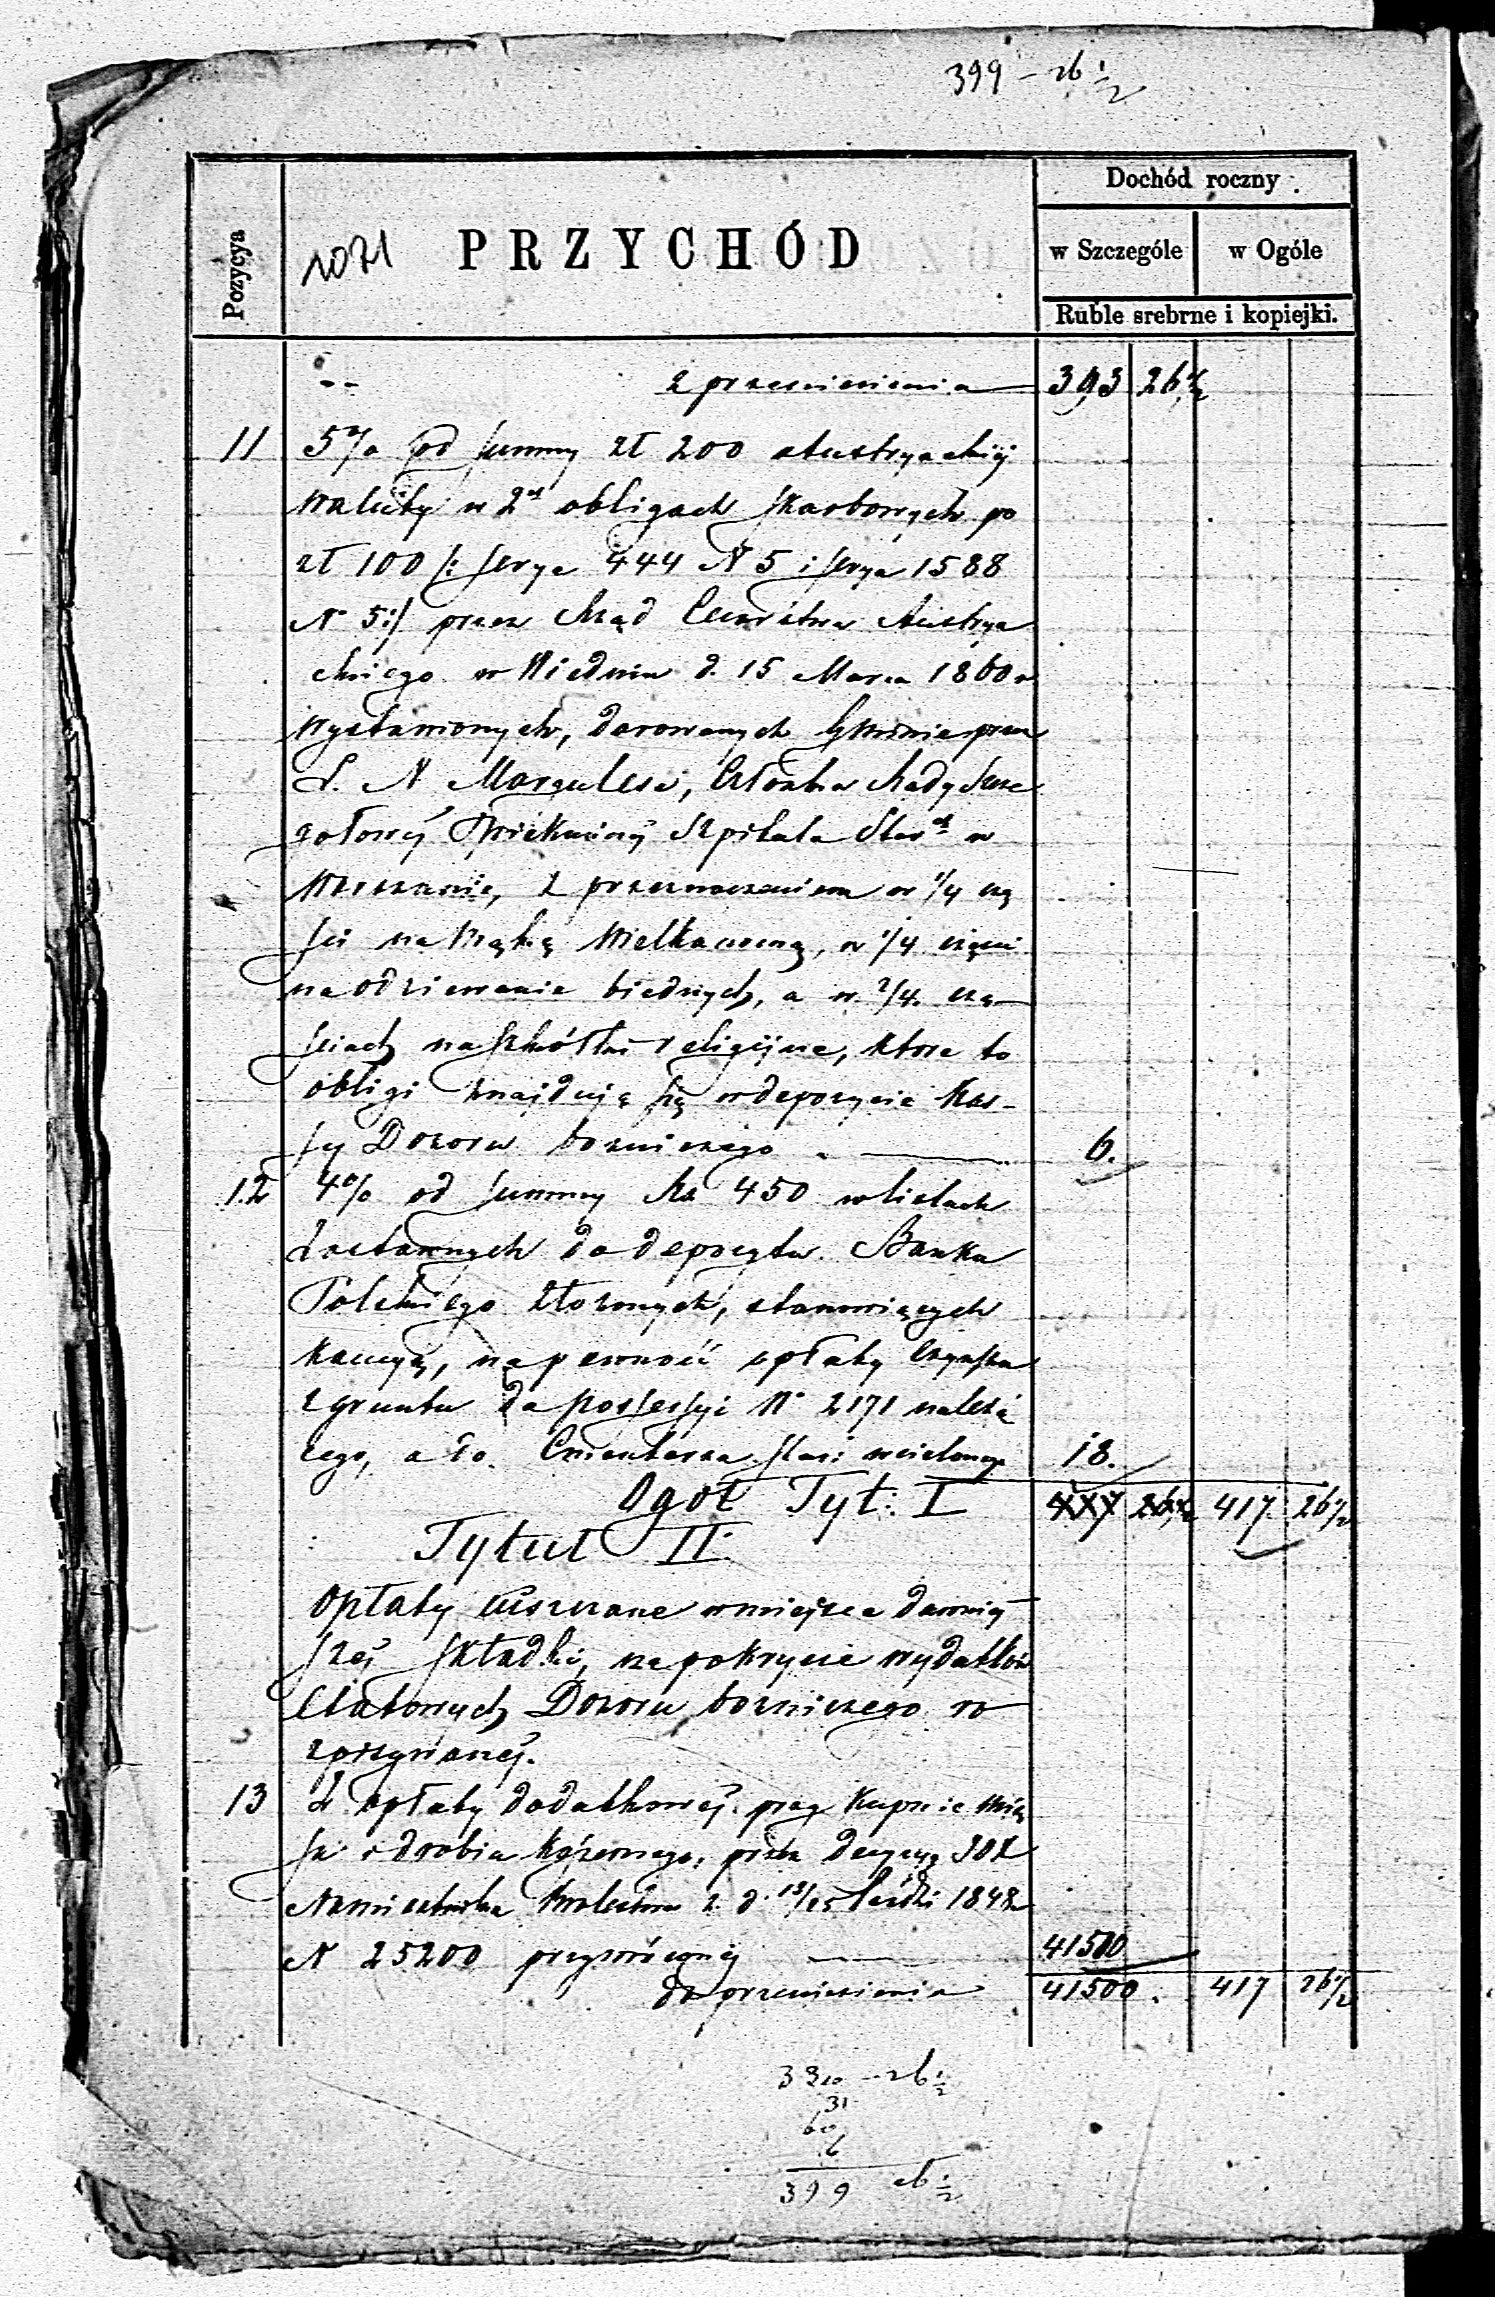 399 – 26 1/2
Dochód roczny
Pozycya
1071
PRZYCHÓD
w Szczególe
w Ogóle
Ruble srebrne i kopiejki.
z przeniesienia 393 26 1/2
11 5% od summy zł 200 Austryackiej
waluty w 2ch obligach skarbowych po
zł 100 /: Serya 444 N 5 i Serya 1588
N 5 :/ przez Rząd Cesarstwa Austrya
ckiego w Wiedniu d. 15 Marca 1860 r
wystawionych, darowanych Gminie przez
N Margulesa, Członka Rady Szcze
gołowej Opiekuńczej Szpitala Star. w
Warszawie, z przeznaczeniem w 1/4 czę
ści na Mąkę Wielkanocną, w 1/4 części
na odziewanie biednych, a w 2/4 czę-
ściach na szkółki religijne, które to
obligi znajdują się w depozycie Kas-
sy Dozoru bożniczego 6.
12 4% od summy Rs 450 w listach
Zastawnych do depozytu Banku
Polskiego złożonych, stanowiących
kaucyą, na pewność opłaty Czynszu
z gruntu do possessyi N 2171 należą
cego, a do Cmentarza Star: wcielonego 18.
Ogół Tyt: I 417 26 1/2 417 26 1/2
Tytuł II.
Opłaty uiszczane w miejsce dawniej
szej składki, na pokrycie wydatków
Etatowych Dozoru bożniczego ro
zpisywanej.
13 Z opłaty dodatkowej przy Kupnie mię
sa i drobiu koszernego, przez decyzyą JOX
Namiestnika Królestwa z d. 13/25 1848 r
N 25200 przyzwolonej 41500
do przeniesienia 41500. 417 26 1/2
26 1/2
31
60
6
399 26 1/2